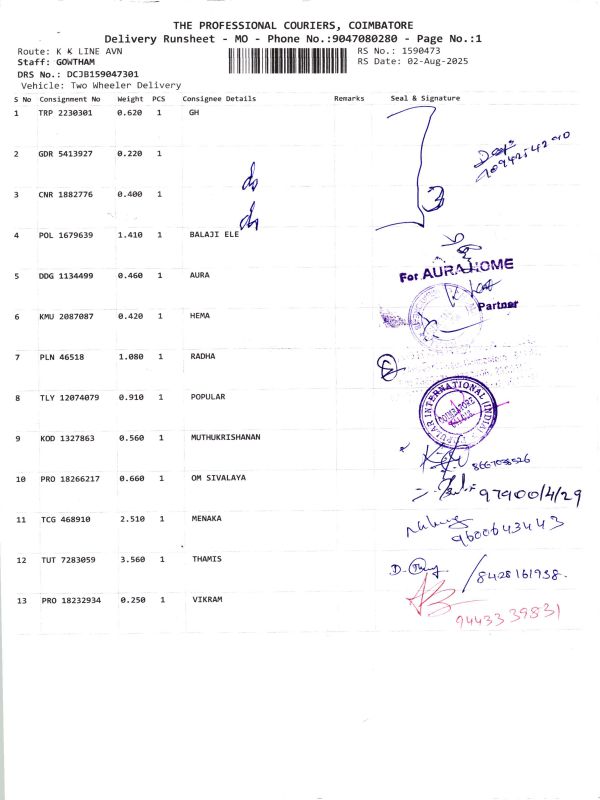 THE PROFESSIONAL COURIERS, COIMBATORE
Delivery Runsheet - MO - Phone No.:9047080280 - Page No.:1
Route: K K LINE AVN RS No.: 1590473
Staff: GOWTHAM RS Date: 02-Aug-2025
DRS No.: DCJB159047301
Vehicle: Two Wheeler Delivery
S No Consignment No Weight PCS Consignee Details Remarks Seal & Signature
1 TRP 2230301 0.620 1 GH
2 GDR 5413927 0.220 1
3 CNR 1882776 0.400 1
3
4 POL 1679639 1.410 1 BALAJI ELE
5 DDG 1134499 0.460 1 AURA
For AURA HOME
Partner
6 KMU 2087087 0.420 1 HEMA
7 PLN 46518 1.080 1 RADHA
8 TLY 12074079 0.910 1 POPULAR
INTERNATIONAL (INDIA)
COIMBATORE
9 KOD 1327863 0.560 1 MUTHUKRISHANAN
10 PRO 18266217 0.660 1 OM SIVALAYA
97900/4/29
11 TCG 468910 2.510 1 MENAKA
9600643443
12 TUT 7283059 3.560 1 THAMIS
8428161938.
13 PRO 18232934 0.250 1 VIKRAM
94433 39831